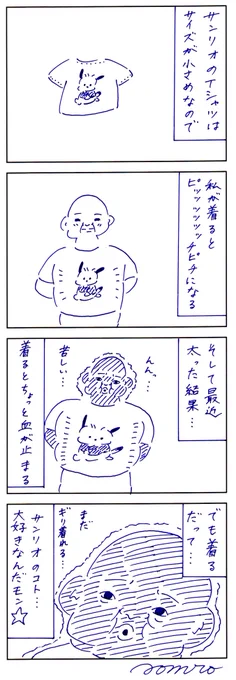 サンリオのTシャツは
サイズが小さめなので
私が着ると
ピッッッッッチピチになる
そして最近
太った結果…
んんっ…
苦しい…
着るとちょっと血が止まる
でも着る
だって…
まだ
ギリ着れる…
サンリオのコト…
大好きなんだモン☆